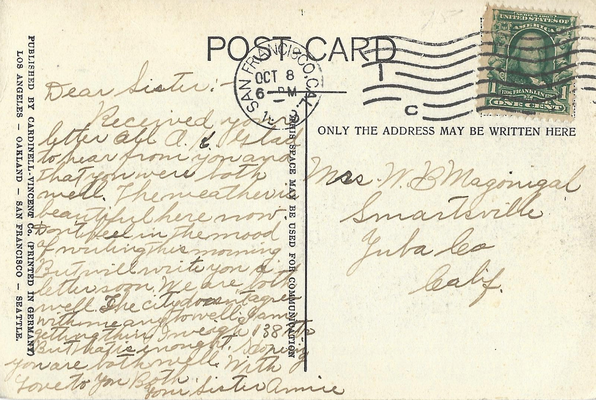 POST CARD
SAN FRANCISCO, CAL.
OCT 8
6 PM
UNITED STATES OF AMERICA
1 FRANKLIN 1
ONE CENT
C
ONLY THE ADDRESS MAY BE WRITTEN HERE
THIS SPACE MAY BE USED FOR COMMUNICATION
PUBLISHED BY CARDINELL-VINCENT CO. (PRINTED IN GERMANY)
LOS ANGELES – OAKLAND – SAN FRANCISCO – SEATTLE.
Dear Sister:-
Received
letter all glad
to hear from you and
that you were both
well. The weather is
beautiful here now.
Dont feel in the mood
of writing this morning
But will write you a
letter soon. We are both
well. The city doesn't agree
with me any to well. I am
getting thin I weigh 138 lbs
But that is enough. Hoping
you are both well. With
Love to You Both
Your Sister Annie
Mrs. W. B Magonigal
Smartsville
Yuba Co
Calif.